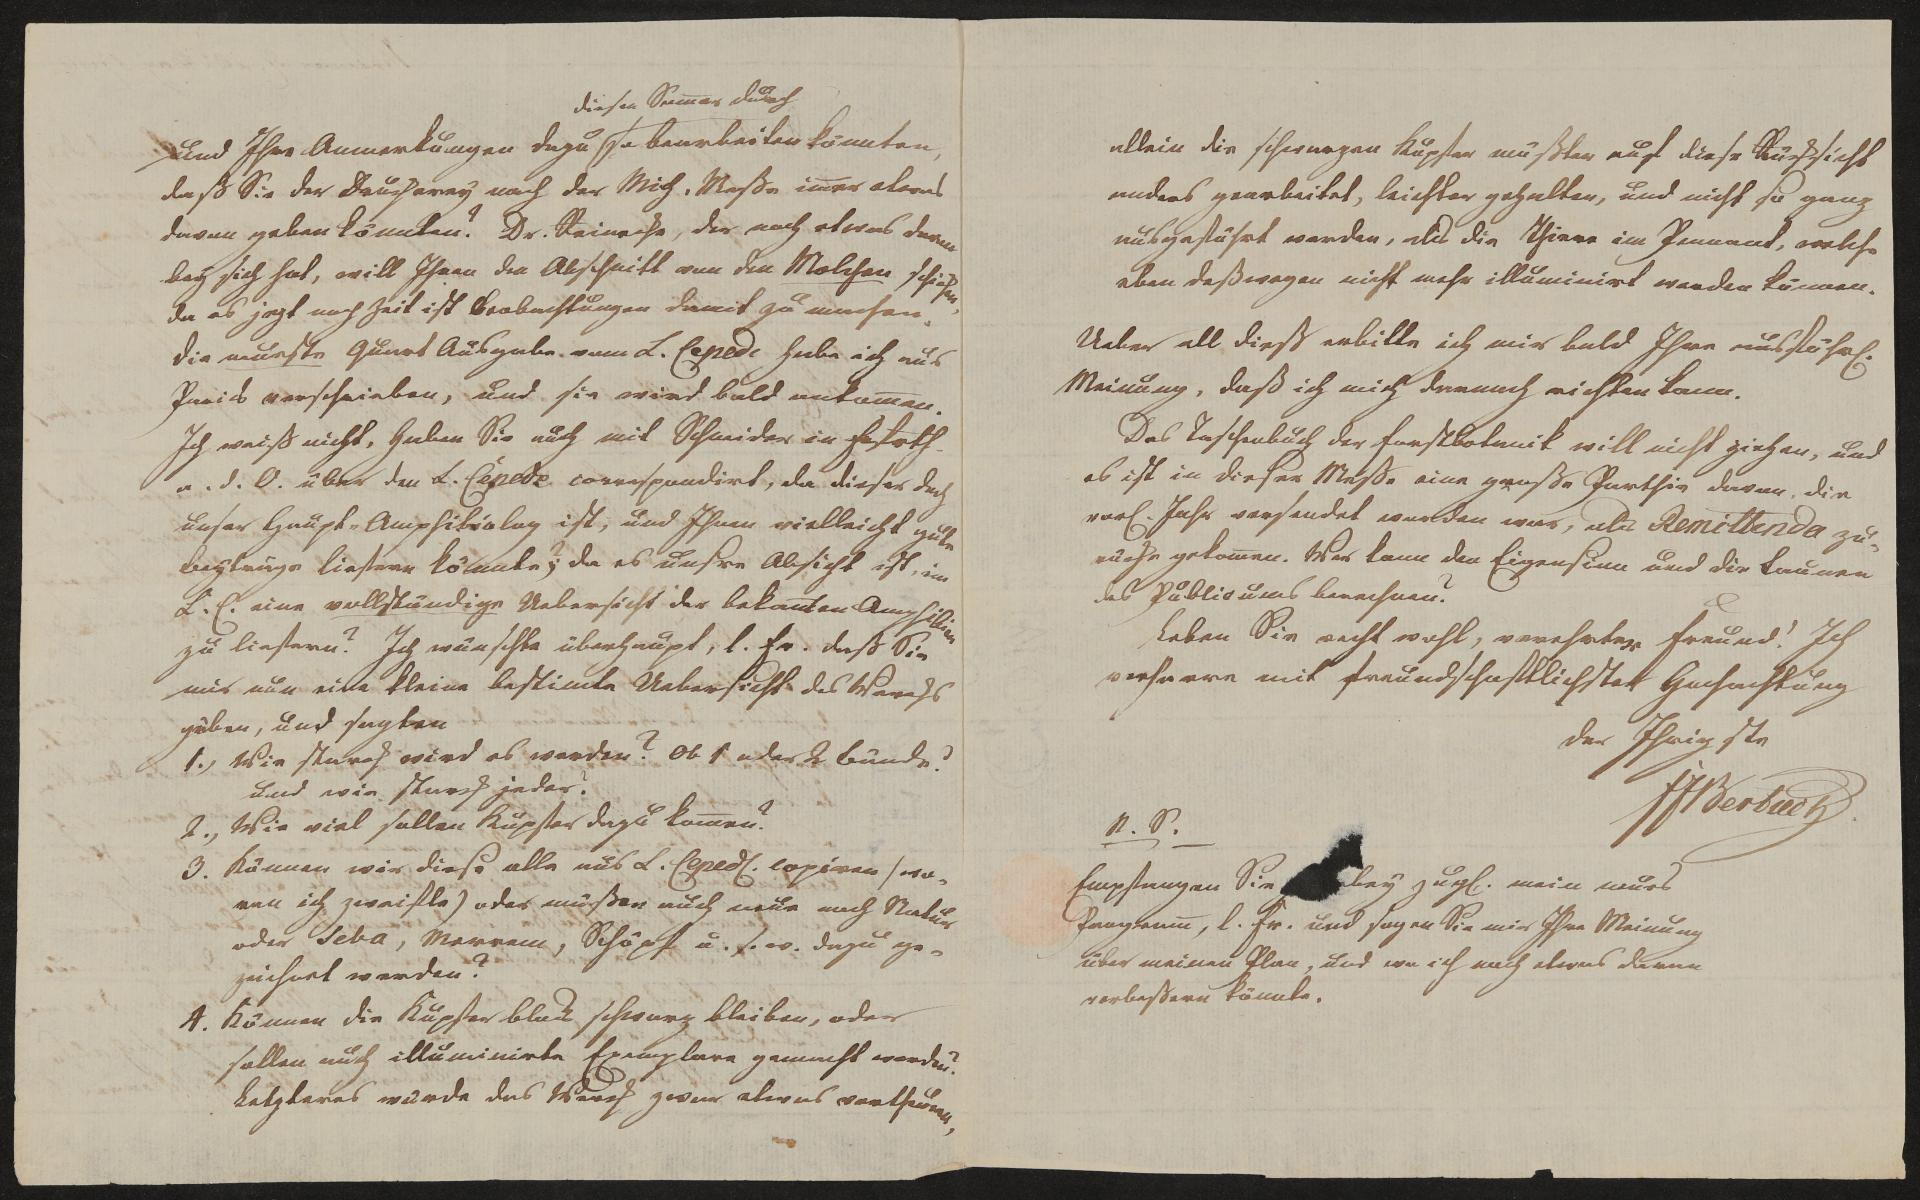 diesen Sommer durch
und Ihre Anmerkungen dazu so bearbeiten könnten,
daß Sie der Druckerey nach der Mich. Messe im̅er etwas
davon geben könnten? Dr. Reinecke, der noch etwas davon
bey sich hat, will Ihnen den Abschnitt von den Molchen schicken,
da es jezt noch Zeit ist Beobachtungen damit zu machen.
Die neueste Quart Ausgabe vom L. Cepede habe ich aus
Paris verschrieben, und sie wird bald ankom̅en.
Ich weiß nicht, haben Sie auch mit Schneider in Frkfth
a. d. O. über den L. Cépede correspondirt, da dieser doch
unser Haupt-Amphibiolog ist, und Ihnen vielleicht gute
Beyträge liefern könnte; da es unsre Absicht ist, im
L. C. eine vollständige Uebersicht der bekan̅ten Amphibien
zu liefern? Ich wünschte überhaupt, l. Fr. daß Sie
mir nun eine kleine bestim̅te Uebersicht des Wercks
gäben, und sagten
1., Wie starck wird es werden? Ob 1 oder 2 Bände?
und wie starck jeder?
2., Wie viel sollen Kupfer dazu kom̅en?
3. Können wir diese alle aus L. Cepede copiren (wo-
ran ich zweifle) oder müßen auch neue nach Natur
oder Seba, Merrem, Schöpf u. s. w. dazu ge-
zeichnet werden?
4. Können die Kupfer blos schwarz bleiben, oder
sollen auch illuminirte Exemplare gemacht werden?
Letzteres würde das Werck zwar etwas vertheuern,
allein die schwarzen Kupfer müßten auf diese Rücksicht
anders gearbeitet, leichter gehalten, und nicht so ganz
ausgeführt werden, als die Thiere im Pennant, welche
eben deßwegen nicht mehr illuminirt werden können.
Ueber all dieß erbitte ich mir bald Ihre ausführl.
Meinung, daß ich mich darnach richten kann.
Das Taschenbuch der Forstbotanik will nicht ziehen, und
es ist in dieser Messe eine große Parthie davon, die
vor. Jahr versendet worden war, als Remittenda zu-
rücke gekom̅en. Wer kann den Eigensinn und die Launen
des Publicums berechnen?
Leben Sie recht wohl, verehrter Freund! Ich
verharre mit freundschaftlichster Hochachtung
der Ihrigste
FJBertuch
N. S.
Empfangen Sie bey zugl. mein neues
Program̅, l. Fr. und sagen Sie mir Ihre Meinung
über meinen Plan, und wo ich noch etwas daran
verbeßern könnte.